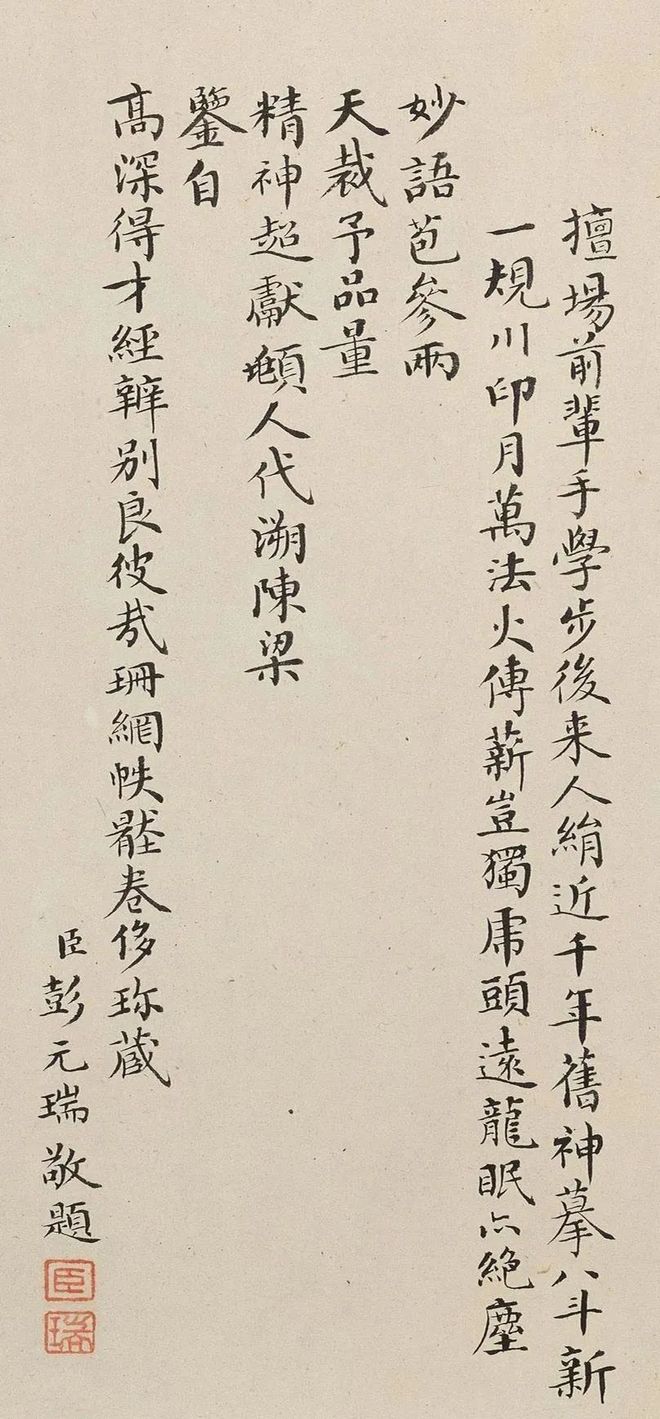 擅場前輩手學步後来人絹近千年舊神摹八斗新
一規川印月萬法火傳薪豈獨虎頭遠龍眠亦絶塵
妙語苞參兩
天裁予品量
精神超獻頫人代溯陳梁
鑒自
高深得才經辨别良彼哉珊網帙羆卷侈珍藏
臣彭元瑞敬題
臣
瑞